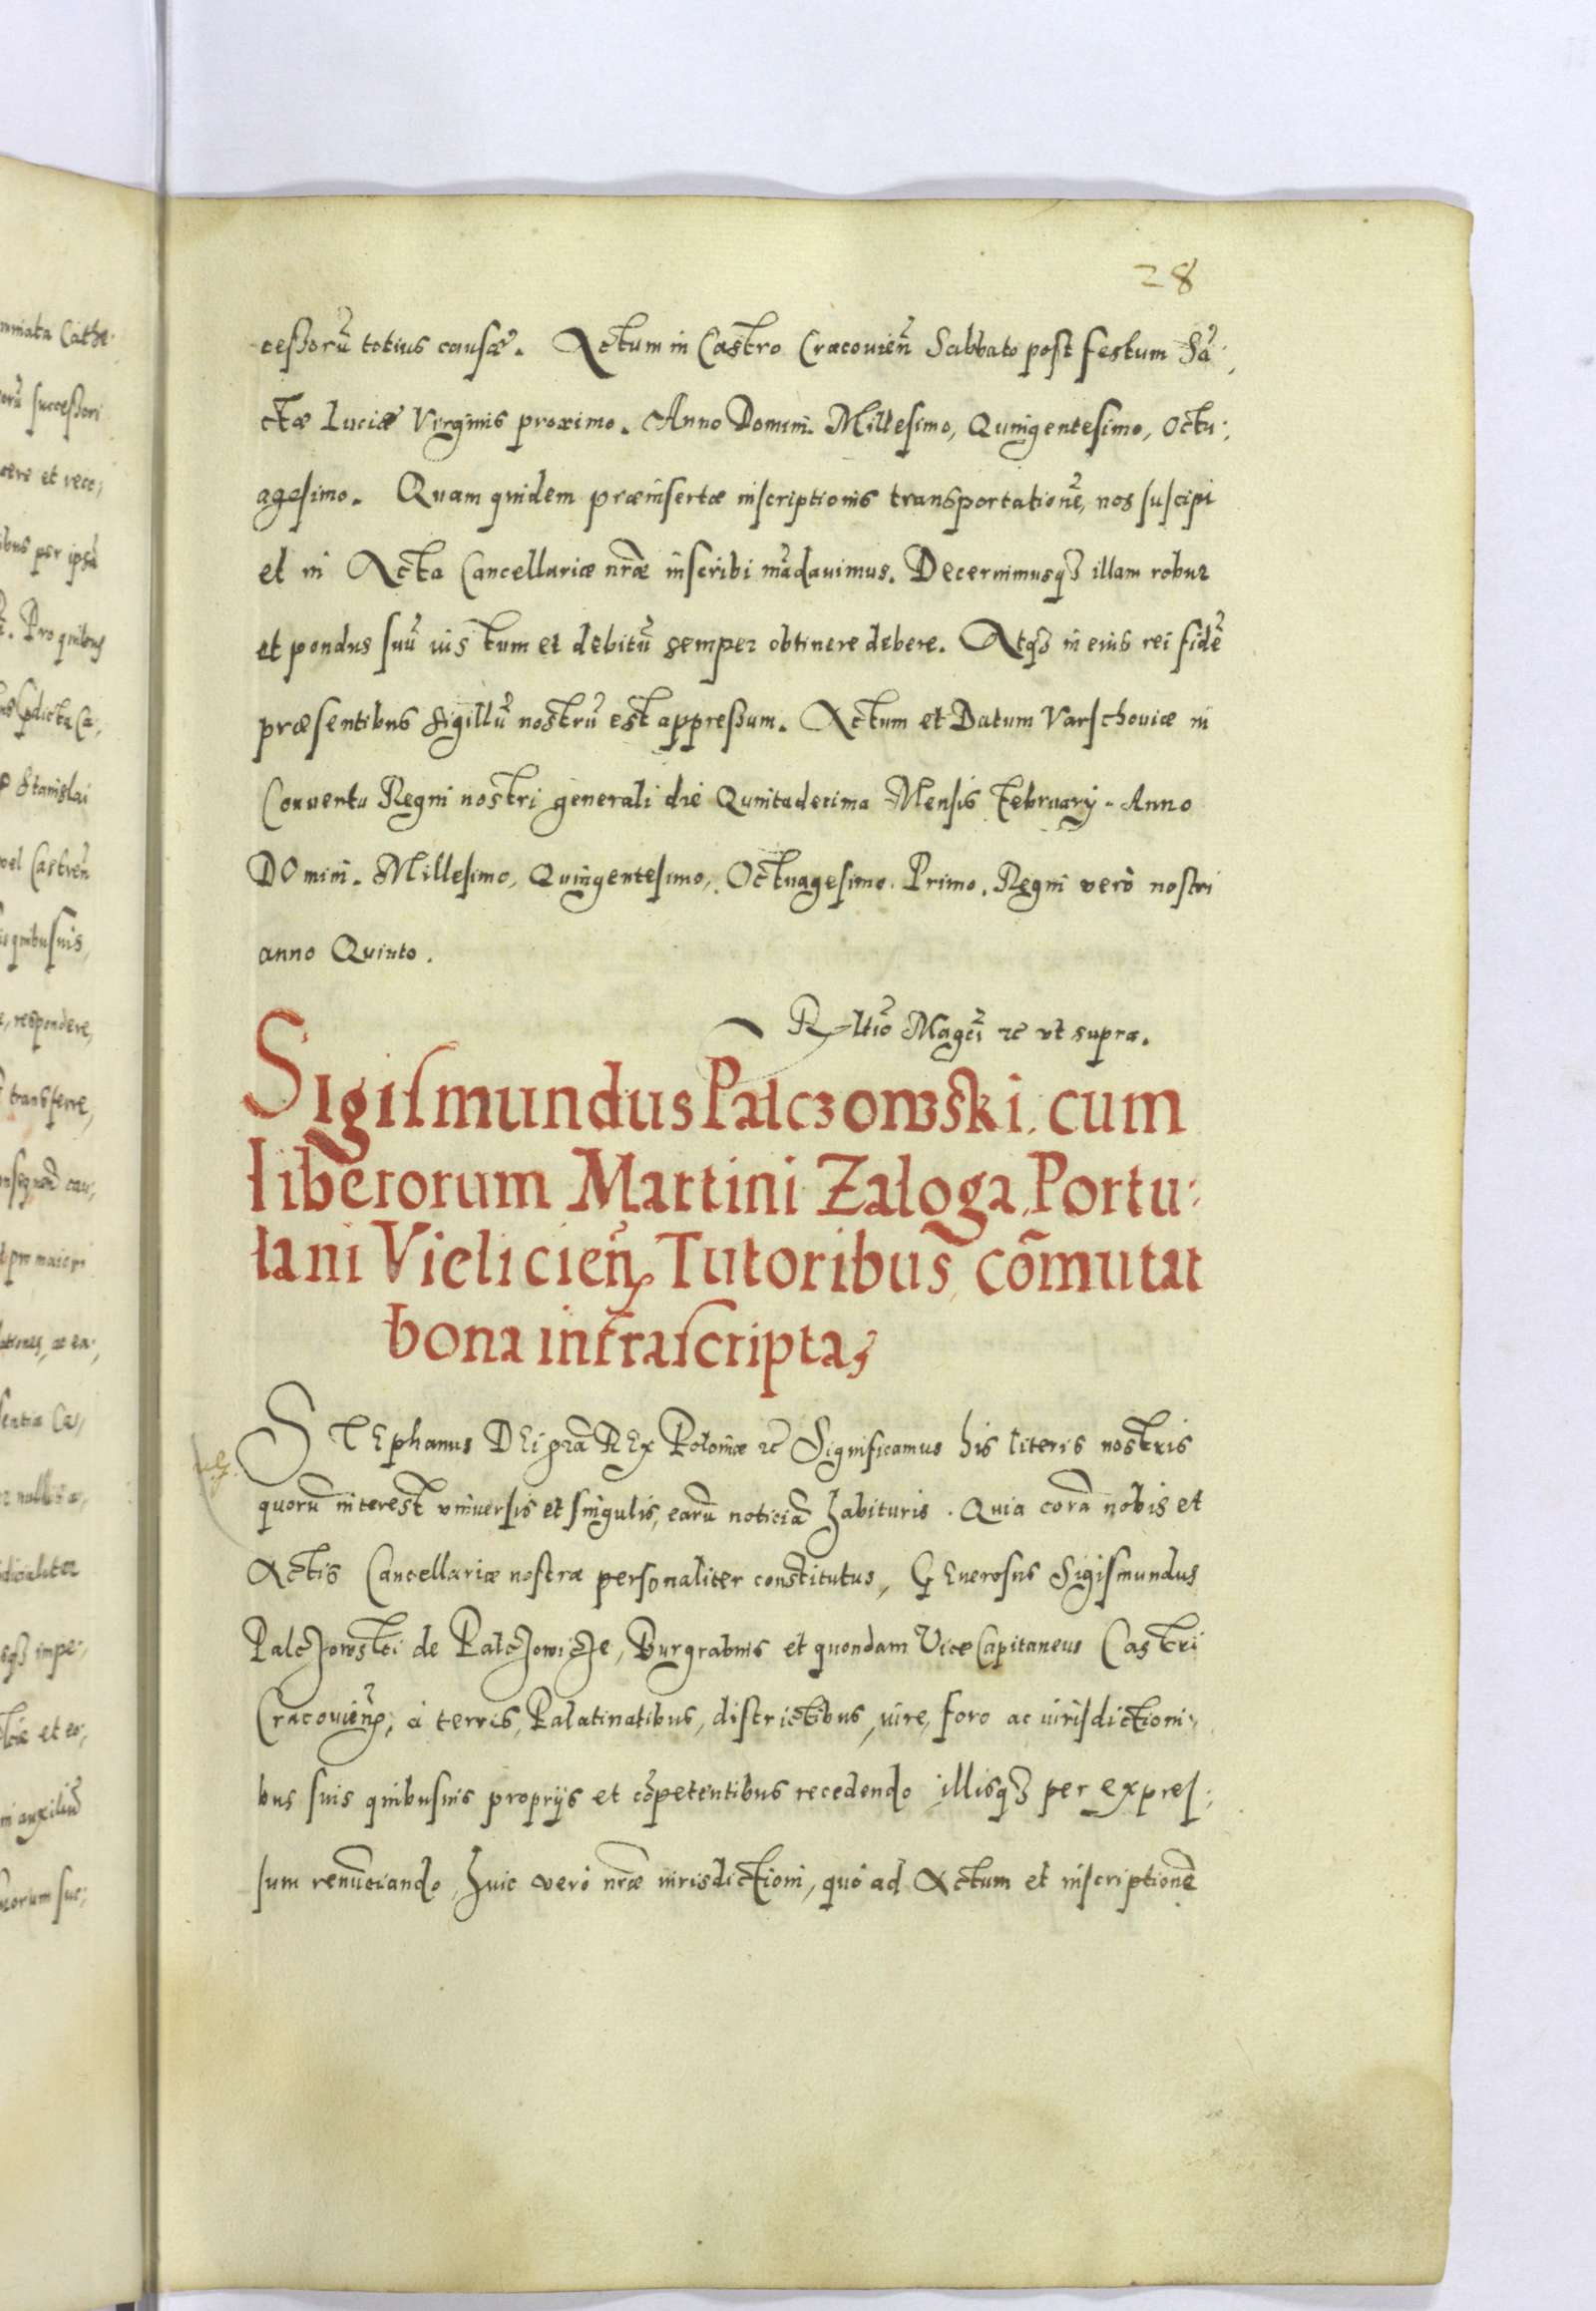 28
ceßorũ totius causæ. Actum in Castro Cracovień Sabbato post festum Sã:
ctæ Luciæ Virginis proximo. Anno Domini. Millesimo, Quingentesimo, Octu:
agesimo. Quam quidem præinsertæ inscriptionis transportationẽ, nos suscipi
et in Acta Cancellariæ nr̃æ inscribi mãdauimus. Decernimusqȝ illam robur
et pondus suũ iustum et debitũ semper obtinere debere. Atqȝ in eius rei fidẽ
præsentibus Sigillũ nostrũ est appreßum. Actum et Datum Varschouiæ in
Conuentu Regni nostri generali die Quintadecima Mensis February. Anno
DOmini. Millesimo, Quingentesimo, Octuagesimo. Primo. Regni verò nostri
anno Quinto.
Rltiõ Magci ꝛc vt supra.
Sigismundus Palczowski, cum
liberorum Martini Zaloga, Portu:
lani Vielicień, Tutoribus, cõmutat
bona infrascripta,
STEphanus DEi gr̃a REx Poloniæ ꝛc Significamus his literis nostris
quorũ interest vniuersis et singulis, earũ noticiã habituris. Quia corã nobis et
Actis Cancellariæ nostræ personaliter constitutus, GEnerosus Sigismundus
Palczowski de Palczowicze, Burgrabius et quondam ViceCapitaneus Castri
Cracovień, à terris, Palatinatibus, districtibus, iure, foro ac iurisdictioni:
bus suis quibusuis proprijs et cõpetentibus recedendo illisqȝ per expres:
sum renũciando, huic verò nr̃æ iurisdictioni, quò ad Actum et inscriptionẽ